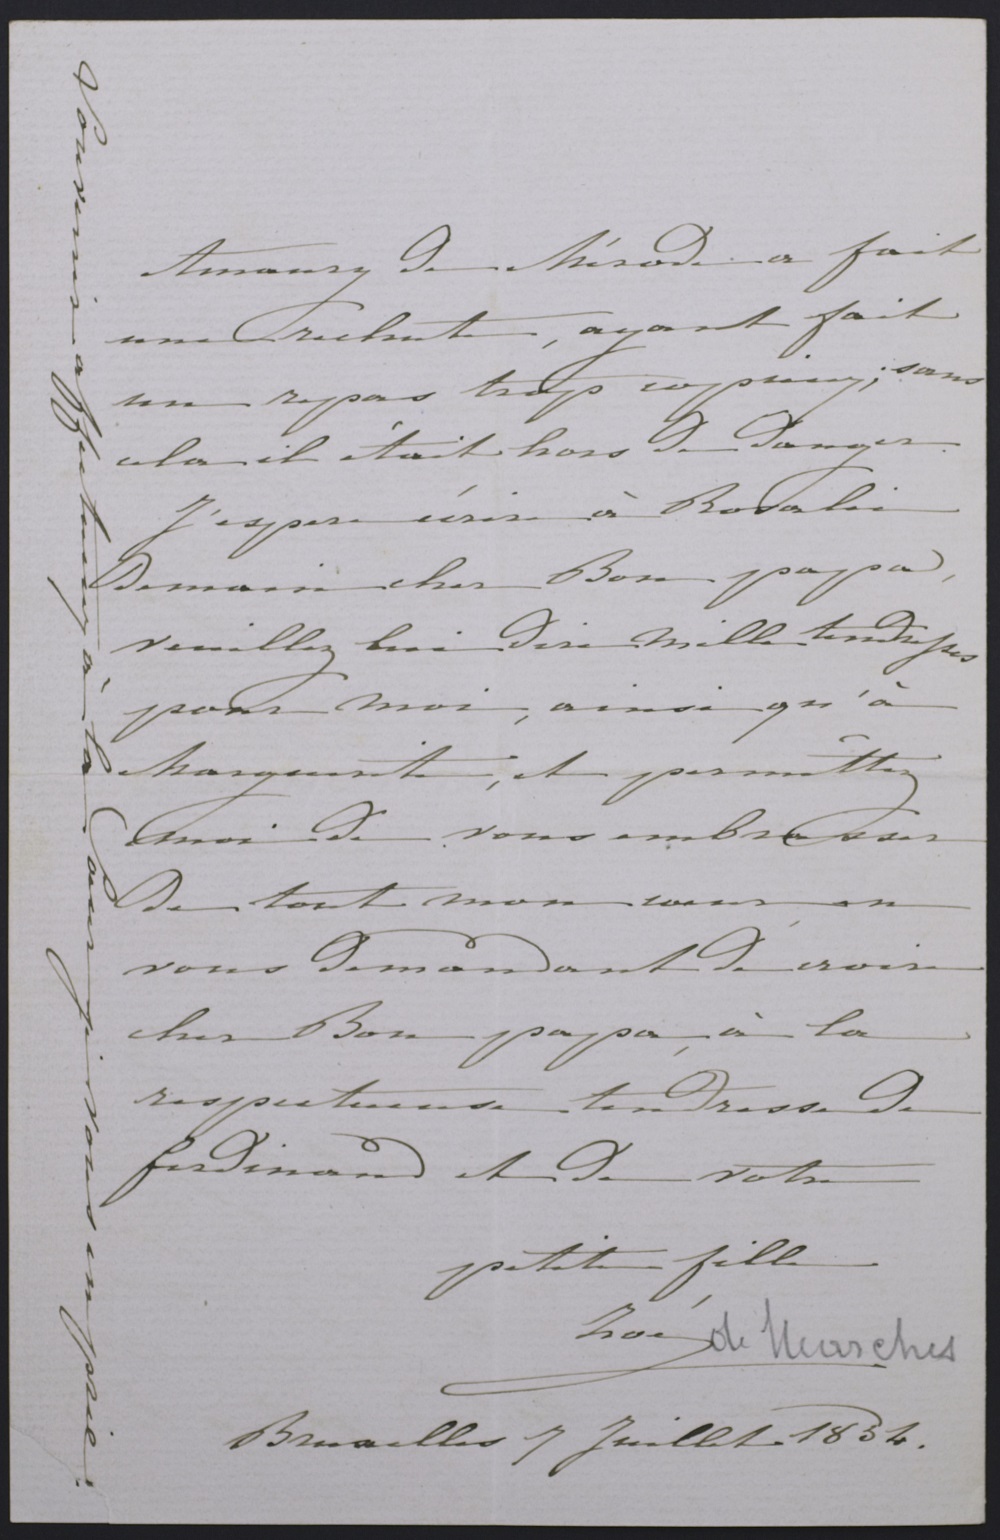 Amaury de Mérode a fait
une rechute, ayant fait
un repas trop copieux; sans
cela il était hors de danger.
J'espere écrire à Rosalie
demain cher Bon papa,
veuillez lui dire mille tendresses
pour moi, ainsi qu'à
Marguerite, et permettez
moi de vous embrasser
de tout mon coeur en
vous demandant de croire
cher Bon papa, à la
respectueuse tendresse de
ferdinand et de votre
petite fille
Zoé de
Bruxelles 7 Juillet 1854.
Souvenir affectueux à la Soeur je vous en prie.